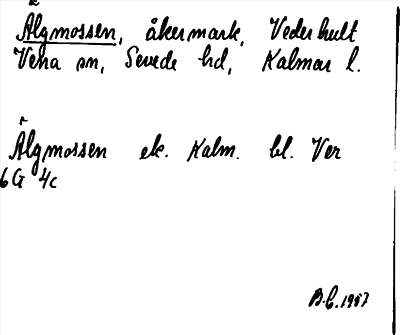 Älgmossen, åkermark, Vederhult
Vena sn, Sevede hd, Kalmar l.
Älgmossen ek. Kalm. bl. Ver
6G 4c
B.C. 1987